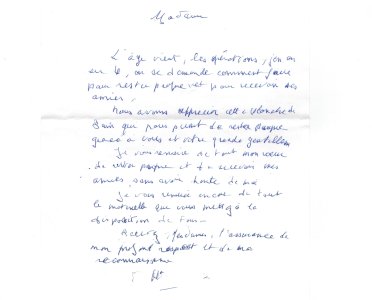 Madame
L'âge vient, les opérations, j'en ai
eu 4, on se demande comment faire
pour rester propre et pour recevoir ses
amies,
Nous avons apprécié cette
Bain qui nous permet de rester propre
grace à vous et votre grande gentillesse
Je vous remercie de tout mon coeur
de rester propre et de recevoir mes
amies sans avoir honte de moi
Je vous remercie encore de tout
le que vous mettez à la
disposition de tous
Recevez, Madame, l'assurance de
mon profond respect et de ma
reconnaissance